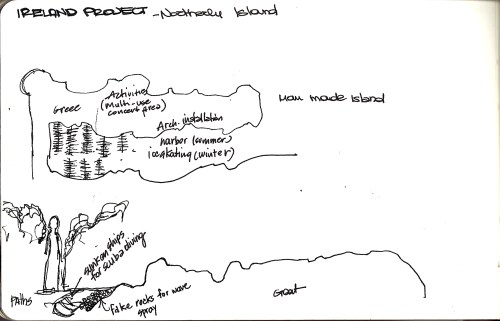 IRELAND PROJECT - Northerly Island
Activities
(Multi-use
concert area)
Man made Island
Arch. installation
harbor (summer)
iceskating (winter)
sunken ships
for scuba diving
Paths
fake rocks for wave
spray